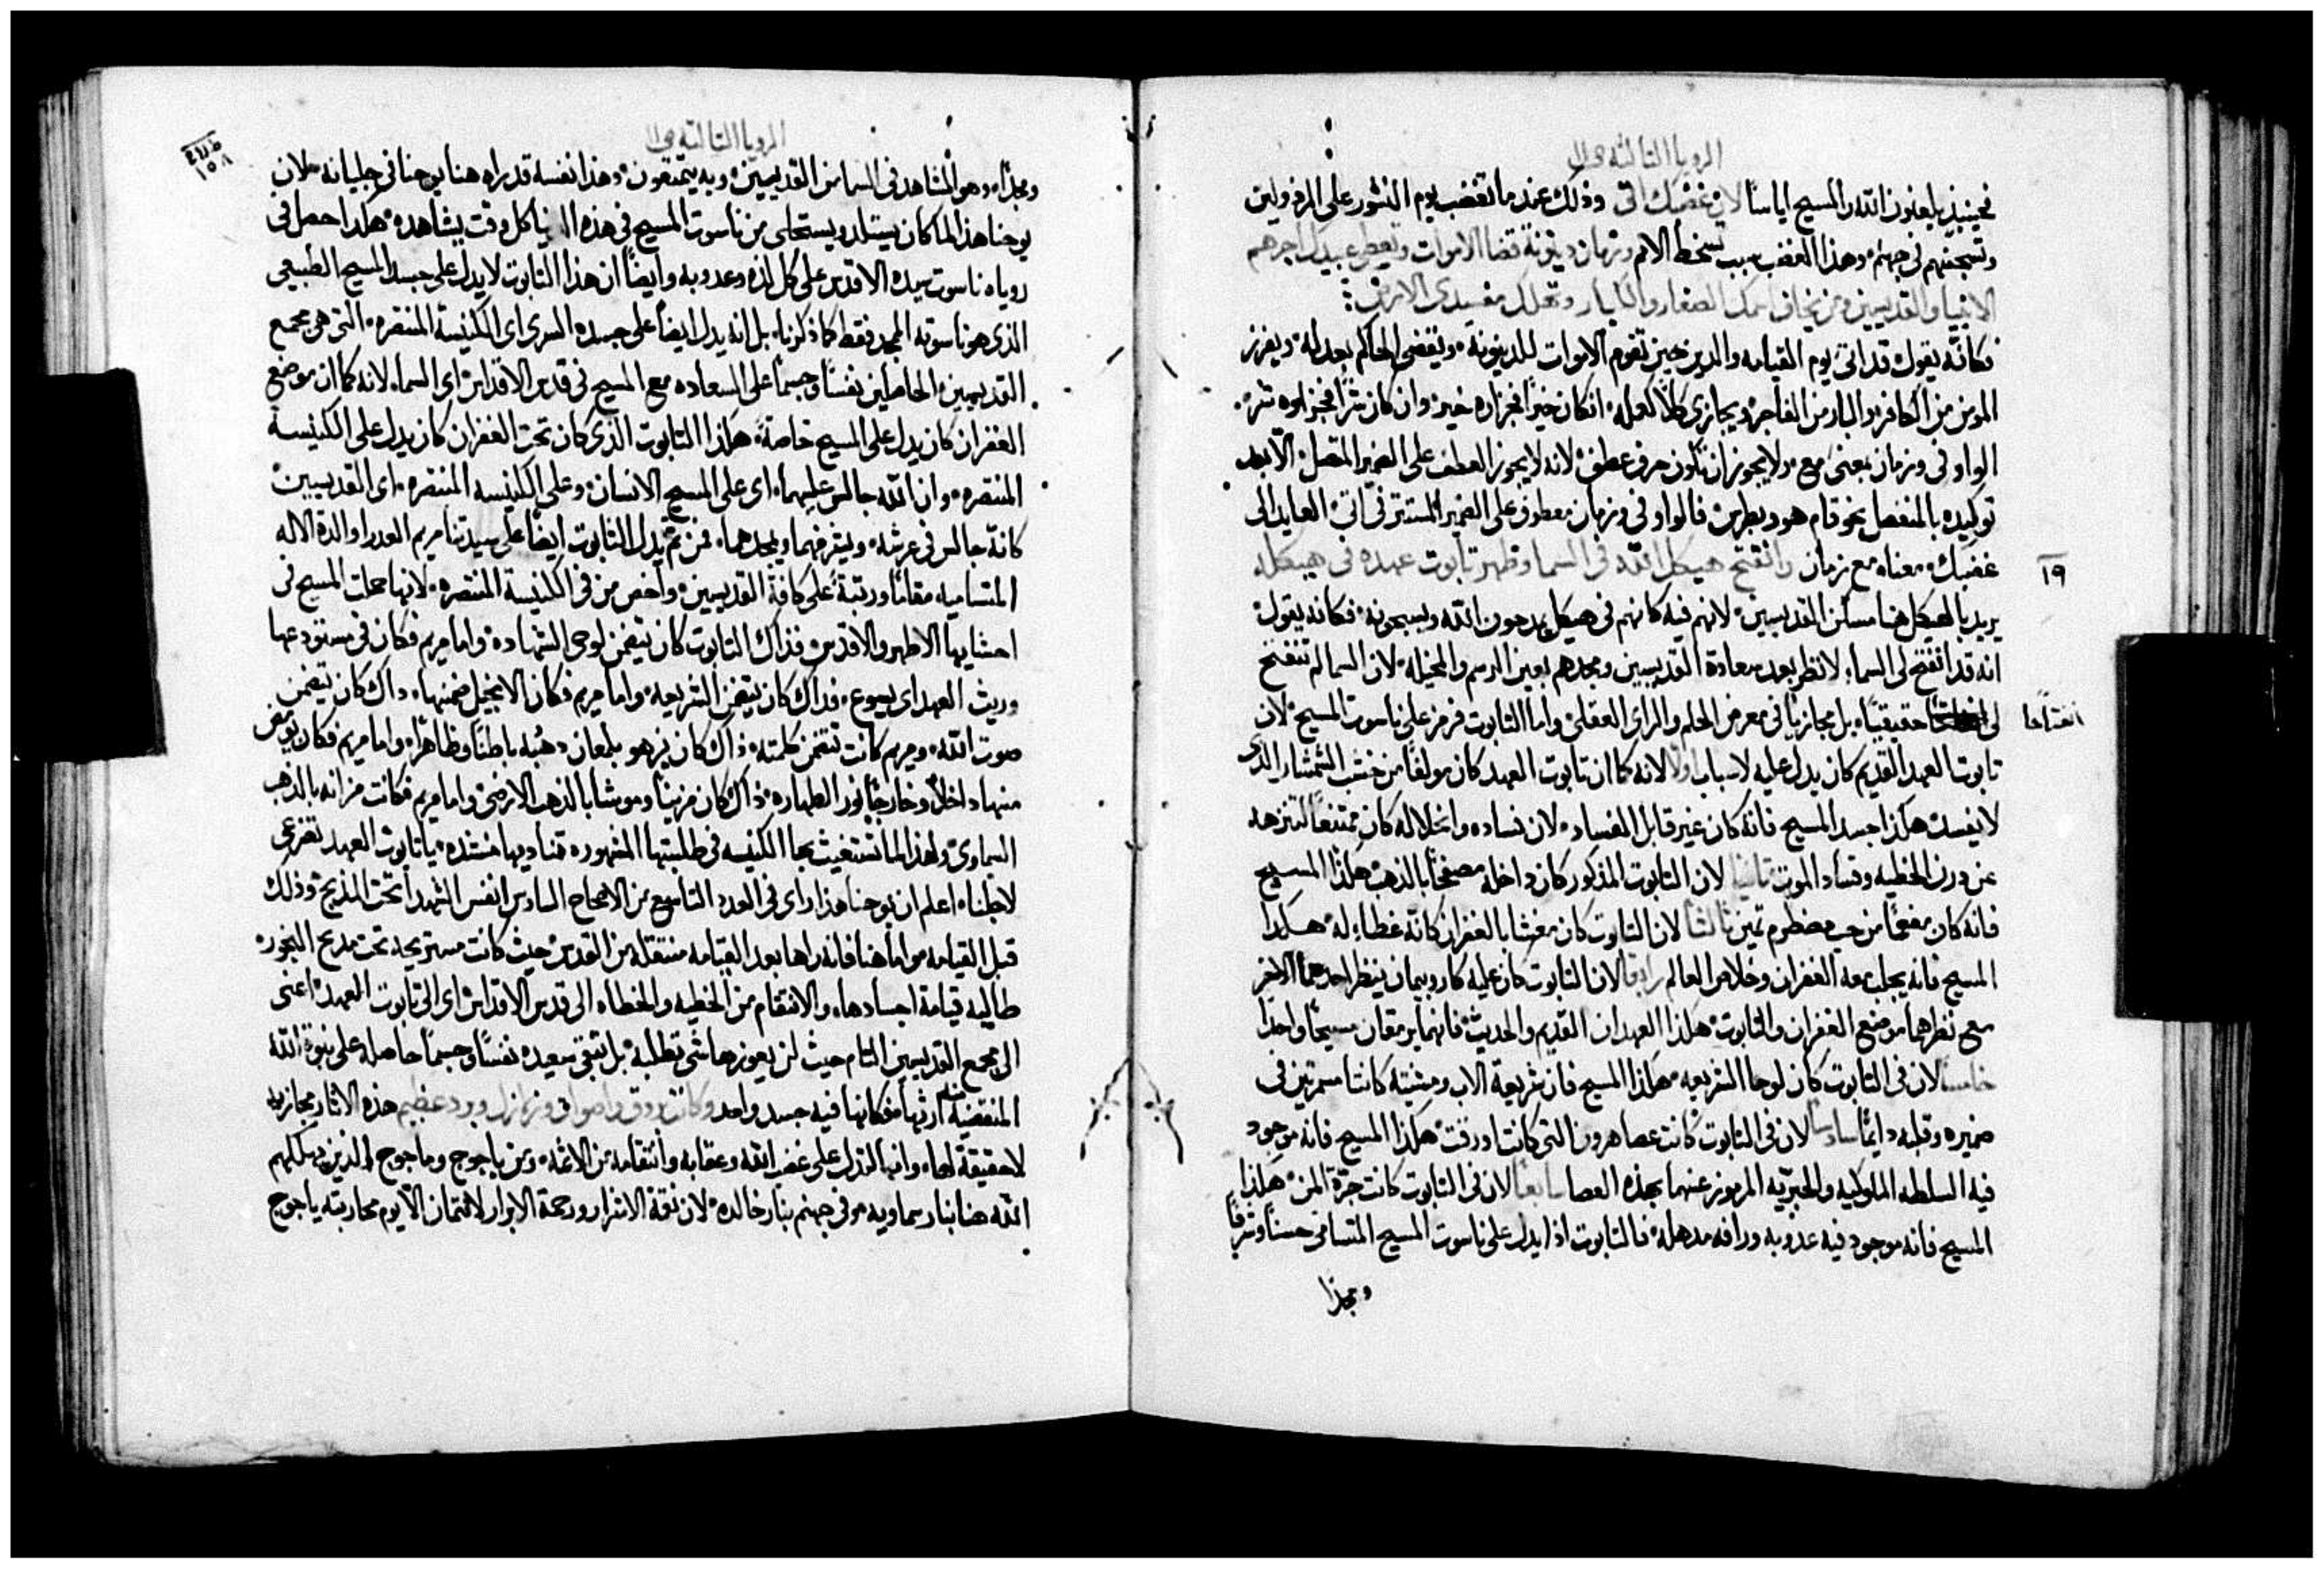 الرويا الثالثة
فحينيذ يلعنون الله والمسيح اياسا لان غضبك اتى وذلك عندما تغضب يوم النشور على المرذولين
وتسجنهم في جهنم وهذا الغضب سبب تسخط الامم وزمان دينونة قضا الاموات وتعطي عبيدك اجرهم
الانبيا والقديسين ومن يخاف اسمك الصغار والكبار وتهلك مفسدى الارض
فكانه يقول قد اتى يوم القيامه والدين حين تقوم الاموات للدينونة ويقضي الحاكم بعدله ويفرز
المومن من الكافر والبار من الفاجر ويجازي كلا كعمله ان كان خيرا فجزاوه خير وان كان شرا فجزاوه شر
الواو في وزمان بمعنى مع ولا يجوز ان تكون حرف عطف لانه لا يجوز العطف على الضمير المتصل الا بعد
توكيده بالمنفصل نحو قام هو وبطرس فالواو في وزمان معطوف على الضمير المستتر في اتى العايد الى
غضبك معناه مع زمان وانفتح هيكل الله في السما وظهر تابوت عهده في هيكله
١٩
يريد بالهيكل هنا مساكن القديسين لانهم فيه كانهم في هيكل يمدحون الله ويسبحونه فكانه يقول
انه قد انفتح لي السماء لانظر بعد سعادة القديسين ومجدهم بعين الرسم والمخيله لان السما لم تنفتح
لي حقيقيا بل مجازيا في معرض الحلم والراى العقلي واما التابوت فرمز على ناسوت المسيح لان
انفتاحا
تابوت العهد القديم كان يدل عليه لاسباب اولا لانه كما ان تابوت العهد كان مولفا من خشب الشمشار الذى
لا يفسد هكذا جسد المسيح فانه كان غير قابل الفساد لان فساده وانحلاله كان ممتنعا لتنزهه
عن درن الخطيه وفساد الموت ثانيا لان التابوت المذكور كان داخله مصفحا بالذهب هكذا المسيح
فانه كان مفعما من حب مضطرم ثمين ثالثا لان التابوت كان مغشا بالغفران كانه غطاء له هكذا
المسيح فانه يجلب معه الغفران وخلاص العالم رابعا لان التابوت كان عليه كاروبيمان ينظر احدهما الاخر
مع نظرهما موضع الغفران والتابوت هكذا العهدان القديم والحديث فانهما يرمقان مسيحا واحدا
خامسا لان في التابوت كان لوحا الشريعه هكذا المسيح فان شريعة الاب ومشيته كانتا مسمرتين في
ضميره وقلبه دايما سادسا لان في التابوت كانت عصا هرون التي كانت اورقت هكذا المسيح فانه موجود
فيه السلطه الملوكيه والحبريه المرموز عنهما بهذه العصا سابعا لان في التابوت كانت جرة المن هكذا
المسيح فانه موجود فيه عذوبه ورافه مذهله فالتابوت اذا يدل على ناسوت المسيح المتسامي حسنا وشرفا
ومجدا
الرويا الثالثة
١٥٨
ومجدا وهو المشاهد في السما من القديسين وبه يتمتعون وهذا نفسه قد راه هنا يوحنا في جليانه لان
يوحنا هذا لما كان يستلد ويستحلى من ناسوت المسيح في هذه الدنيا كل وقت يشاهده هكذا حصل في
روياه ناسوت سيده الاقدس على كل لذه وعدوبه وايضا ان هذا التابوت لا يدل على جسد المسيح الطبيعي
الذي هو ناسوته الممجد فقط كما ذكرنا بل انه يدل ايضا على جسده السرى اى الكنيسة المنتصره التي هي مجمع
القديسين الحاصلين نفسا وجسما على السعاده مع المسيح في قدس الاقداس اي السماء لانه كما ان موضع
الغفران كان يدل على المسيح خاصة هكذا التابوت الذي كان تحت الغفران كان يدل على الكنيسة
المنتصره وان الله جالس عليهما اى على المسيح الانسان وعلى الكنيسه المنتصره اى القديسين
كانه جالس في عرشه ويشرفهما ويمجدهما فمن ثم يدل التابوت ايضا على سيدتنا مريم العدرا والدة الاله
المتساميه مقاما ورتبة على كافة القديسين واخص من في الكنيسة المنتصره لانها حملت المسيح في
احشايها الاطهر والاقدس فذاك التابوت كان يتضمن لوحى الشهاده واما مريم فكان في مستودعها
وريث العهد اى يسوع فداك كان يتضمن الشريعه واما مريم فكان الانجيل ضمنها داك كان يتضمن
صوت الله ومريم كانت تتضمن كلمته ذاك كان يزهو بلمعان دهبه باطنا وظاهرا واما مريم فكان يومض
منها داخلا وخارجا نور الطهاره ذاك كان مزينا وموشا بالذهب الارضي واما مريم فكانت مزانه بالذهب
السماوي ولهذا لما تستغيث بها الكنيسه في طلبتها المشهوره تناديها منشده يا تابوت العهد تضرعي
لاجلنا اعلم ان يوحنا هذا راى في العدد التاسع من الاصحاح السادس انفس الشهدا تحت المذبح وذلك
قبل القيامه واما هنا فانه راها بعد القيامه منتقله من القدس حيث كانت مستريحه تحت مذبح البخور
طالبه قيامة اجسادها والانتقام من الخطيه والخطاه الى قدس الاقداس اى الى تابوت العهد اعنى
الى مجمع القديسين التام حيث لن يعوزها شي تطلبه بل تبقى سعيده نفسا وجسما حاصله على بنوة الله
المنقضية ارثها فكانها فيه جسد واحد وكانت بروق واصوات وزلازل وبرد عظيم هذه الاثار مجازيه
لا حقيقة لها وانها لتدل على غضب الله وعقابه وانتقامه من الاثمه ومن ياجوج وماجوج الذين يهلكهم
الله هنا بنار سماويه وفي جهنم بنار خالده لان نقمة الاشرار ورحمة الابرار لا تتمان الا يوم محاربته ياجوج